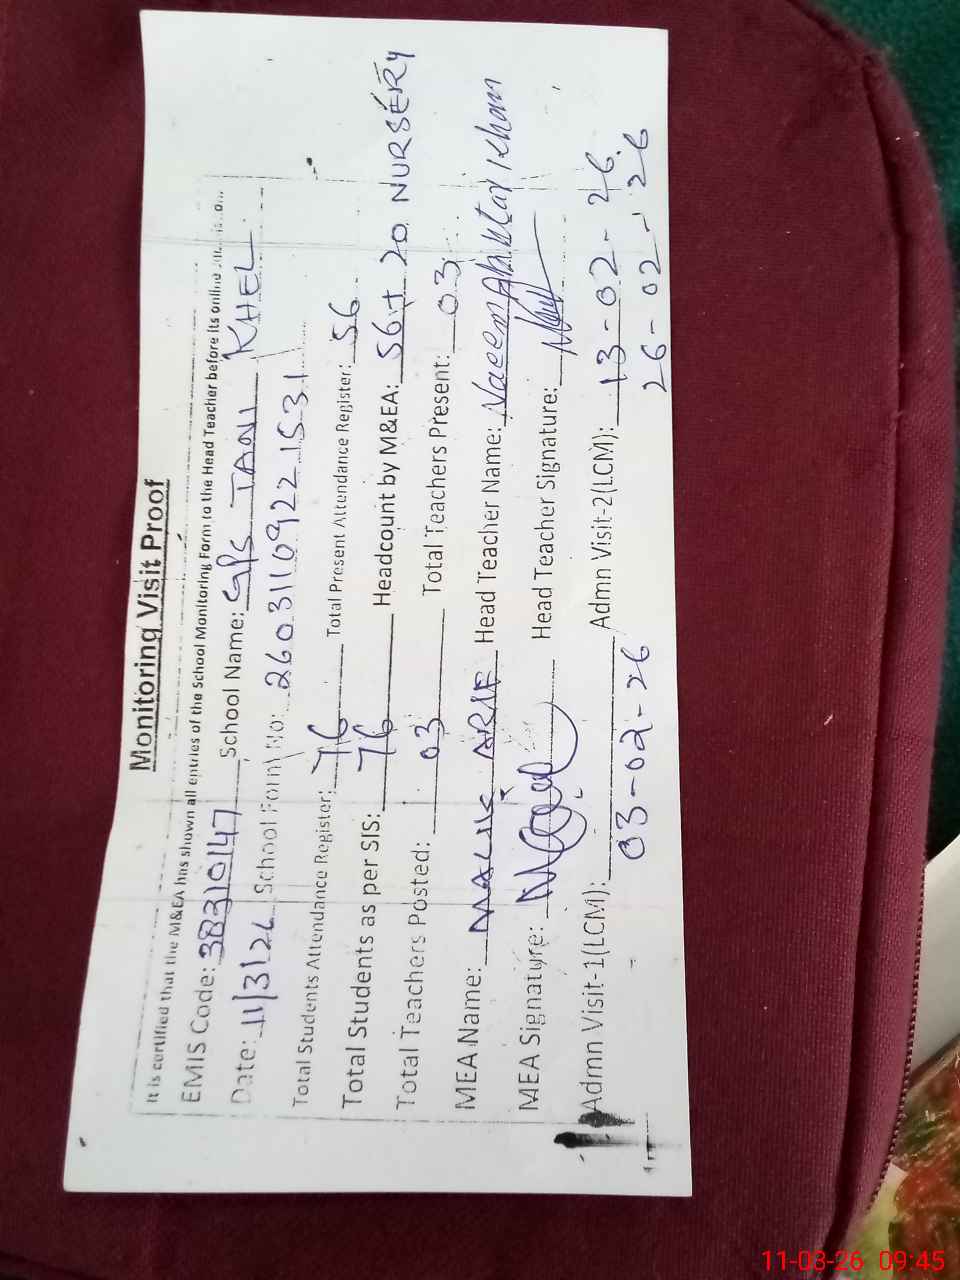 Monitoring Visit Proof
It is certified that the M&EA has shown all entries of the School Monitoring Form to the Head Teacher before its online
EMIS Code: 38310147 School Name: GPS TANI KHEL
Date: 11/3/26 School Form No: 26031109221531
Total Students Attendance Register: 76 Total Present Attendance Register: 56
Total Students as per SIS: 76 Headcount by M&EA: 56+20 NURSERY
Total Teachers Posted: 03 Total Teachers Present: 03
MEA Name: MALIK ARIF Head Teacher Name: Naeem Akhtar Khan
MEA Signature: Head Teacher Signature:
Admn Visit-1(LCM): 03-02-26 Admn Visit-2(LCM): 13-02-26
26-02-26
11-03-26 09:45